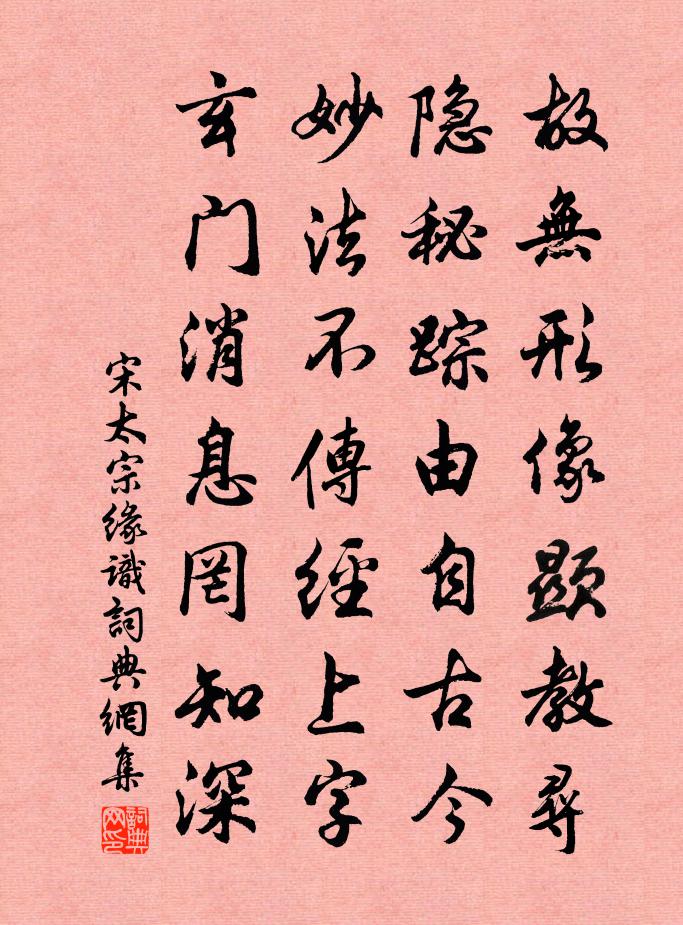 故無形像顯教尋
隐秘踪由自古今
妙法不傳經上字
玄门消息罔知深
宋太宗緣識詞典網集
詞典网印